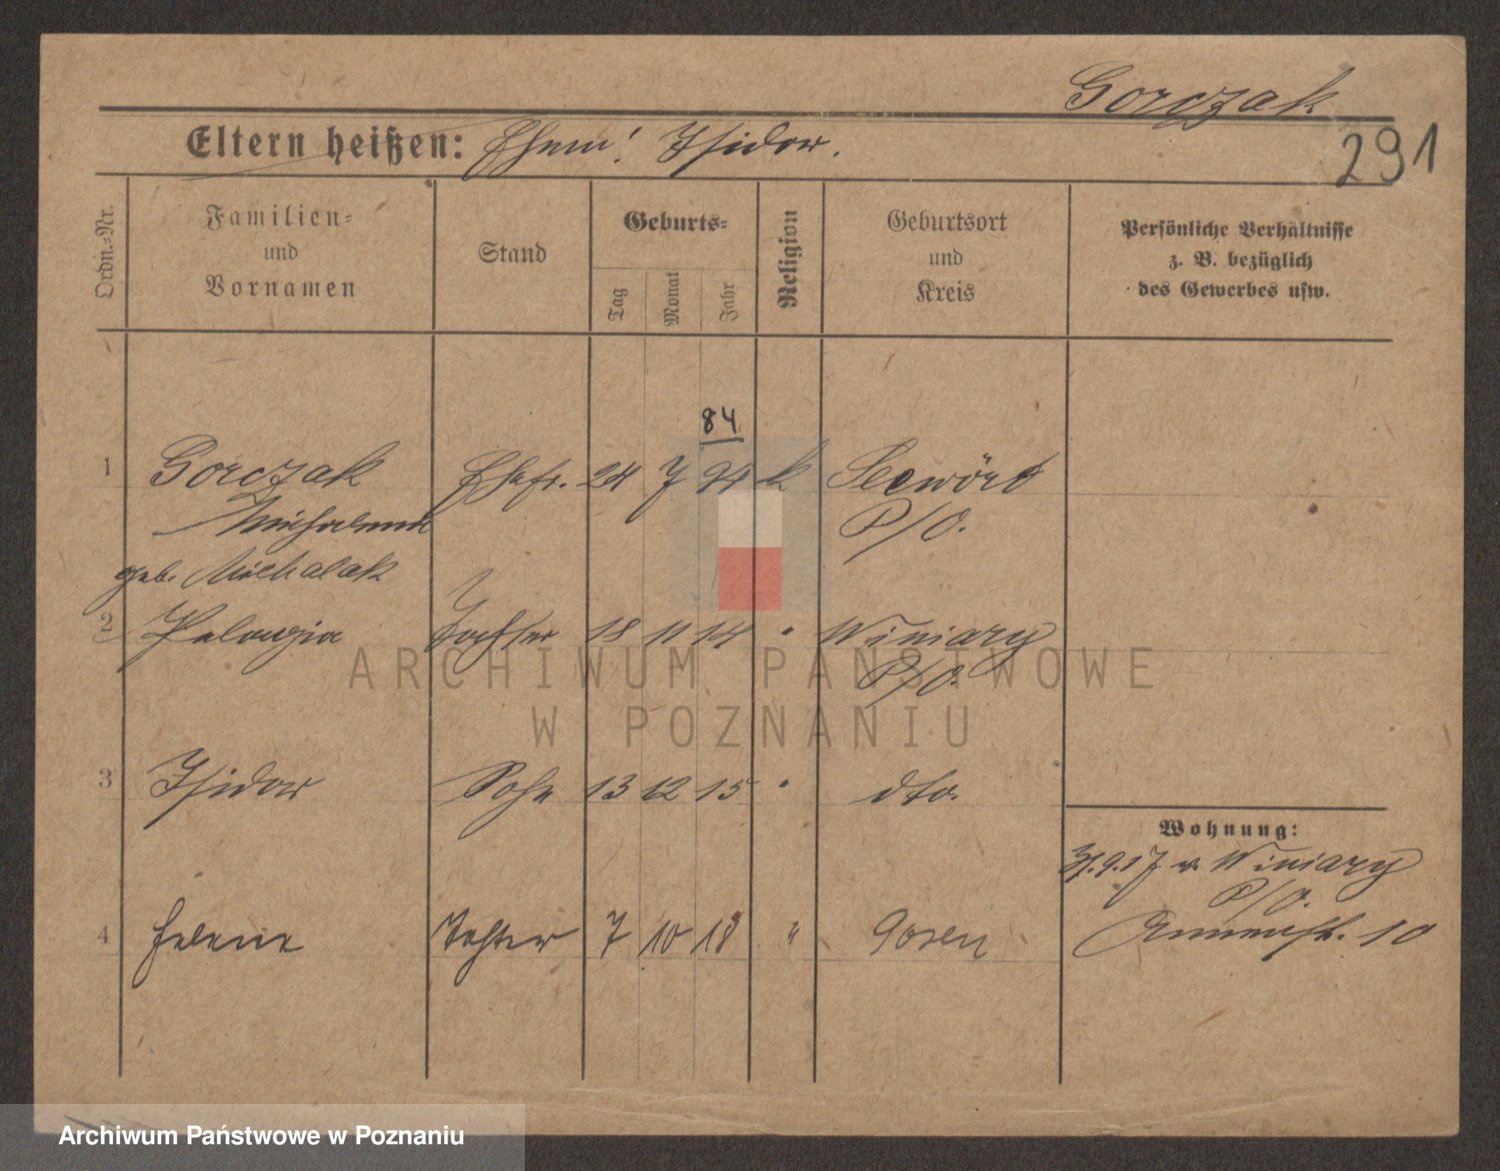 Gorczak
Eltern heißen: Ehem! Isidor.
291
Ordn.-Nr.
Familien-
und
Vornamen
Stand
Geburts-
Tag
Monat
Jahr
Religion
Geburtsort
und
Kreis
Persönliche Verhältnisse
z. B. bezüglich
des Gewerbes usw.
84
1 Gorczak Ehefr. 24 7 94 k Seewört
Michalina P/O.
geb. Michalak
2 Pelagia Tochter 18 11 14 " Winiary
P/O.
ARCHIWUM PAŃSTWOWE
W POZNANIU
3 Isidor Sohn 13 12 15 " dto.
Wohnung:
9.17 v. Winiary
P/O.
4 Helene Tochter 7 10 18 " Posen
10
Archiwum Państwowe w Poznaniu